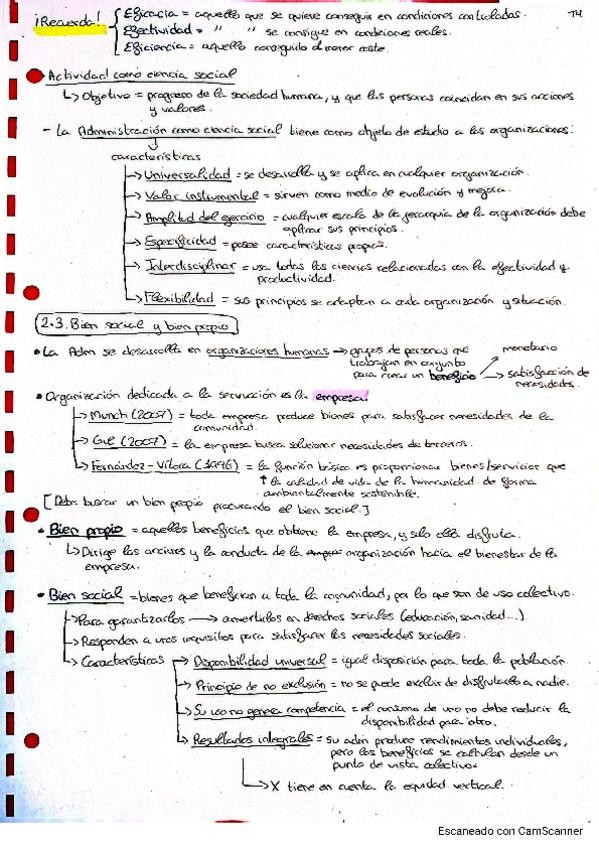 ¡Recuerda! Eficacia = aquello que se quiere conseguir en condiciones controladas. T4
Efectividad = " " se consigue en condiciones reales.
Eficiencia = aquello conseguido al menor coste.
Actividad como ciencia social
↳ Objetivo = progreso de la sociedad humana, y que las personas coincidan en sus acciones
y valores.
- La Administración como ciencia social tiene como objeto de estudio a las organizaciones:
características
→ Universalidad = se desarrolla y se aplica en cualquier organización.
→ Valor instrumental = sirven como medio de evolución y mejora.
→ Amplitud del ejercicio = cualquier escala de la jerarquía de la organización debe
aplicar sus principios.
→ Especificidad = posee características propias.
→ Interdisciplinar = usa todas las ciencias relacionadas con la efectividad y
productividad.
→ Flexibilidad = sus principios se adaptan a cada organización y situación.
2.3. Bien social y bien propio
• La Adm se desarrolla en organizaciones humanas → grupos de personas que monetario
trabajan en conjunto
para crear un beneficio → satisfacción de
necesidades.
• Organización dedicada a la es la empresa:
→ Munch (2007) = toda empresa produce bienes para satisfacer necesidades de la
comunidad.
→ Gil (2007) = la empresa busca solucionar necesidades de terceros.
→ (1996) = la función básica es proporcionar bienes/servicios que
↑ la calidad de vida de la humanidad de forma
ambientalmente sostenible.
[Debe buscar un bien propio procurando el bien social.]
• Bien propio = aquellos beneficios que obtiene la empresa, y solo ella disfruta.
↳ Dirige las acciones y la conducta de la organización hacia el bienestar de la
empresa.
• Bien social = bienes que benefician a toda la comunidad, por lo que son de uso colectivo.
→ Para garantizarlos → convertirlos en derechos sociales (educación, sanidad...)
→ Responden a unos requisitos para satisfacer las necesidades sociales.
→ Características → Disponibilidad universal = igual disposición para toda la población.
→ Principio de no exclusión = no se puede excluir de disfrutarlo a nadie.
→ Su uso no genera competencia = el consumo de uno no debe reducir la
disponibilidad para otro.
→ Resultados integrales = su adm produce rendimientos individuales,
pero los beneficios se calculan desde un
punto de vista colectivo.
→ X tiene en cuenta la equidad vertical.
Escaneado con CamScanner